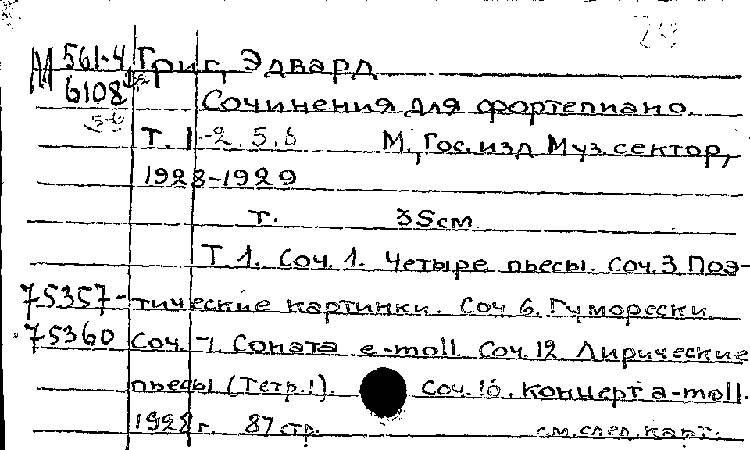 М 561-4 Григ, Эдвард
6108
Сочинения для фортепиано.
5-6
Т. 1-2 5,6 М., Гос. изд Муз. сектор,
1928-1929
т. 35см
Т 1. Соч. 1. Четыре пьесы. Соч. 3 Поэ-
75357- тические картинки. Соч 6. Гуморески
75360 Соч. 7. Соната e-moll Соч. 12 Лирические
пьесы (Тетр. 1). Соч. 16. Концерт a-moll.
1928г. 87 стр. см. след. карт.